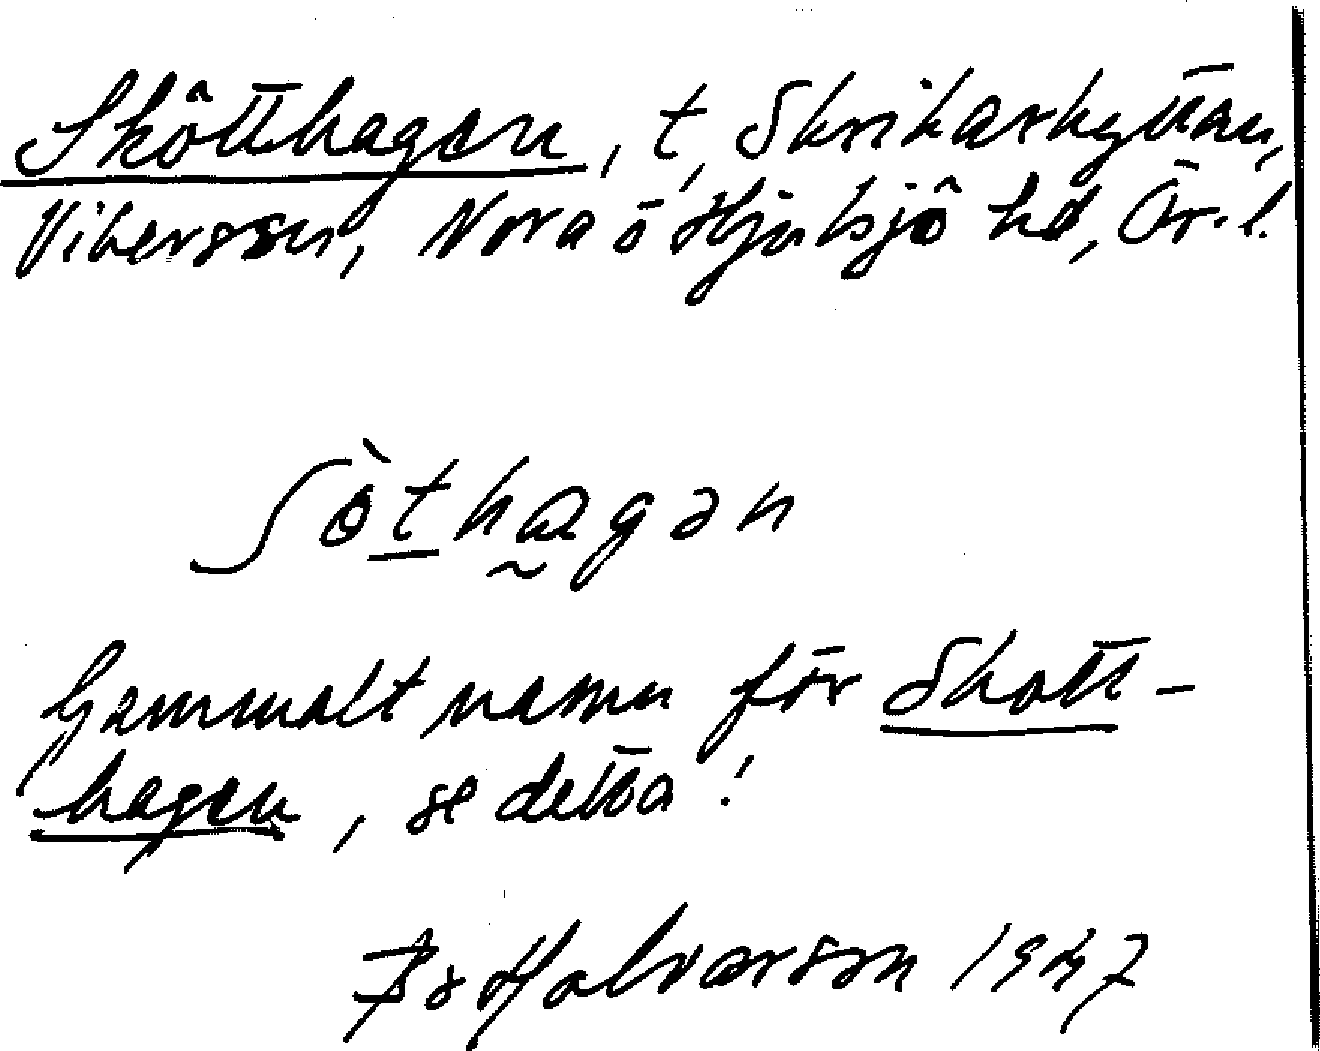 Skötthagen, t, Skrikarhyttan,
Vikersson, Nora o Hjulsjö hd, Ör. l.
ʃö̀thagən
Gammalt namn för Skott-
hagen, se detta!
Bo Halvarson 1947